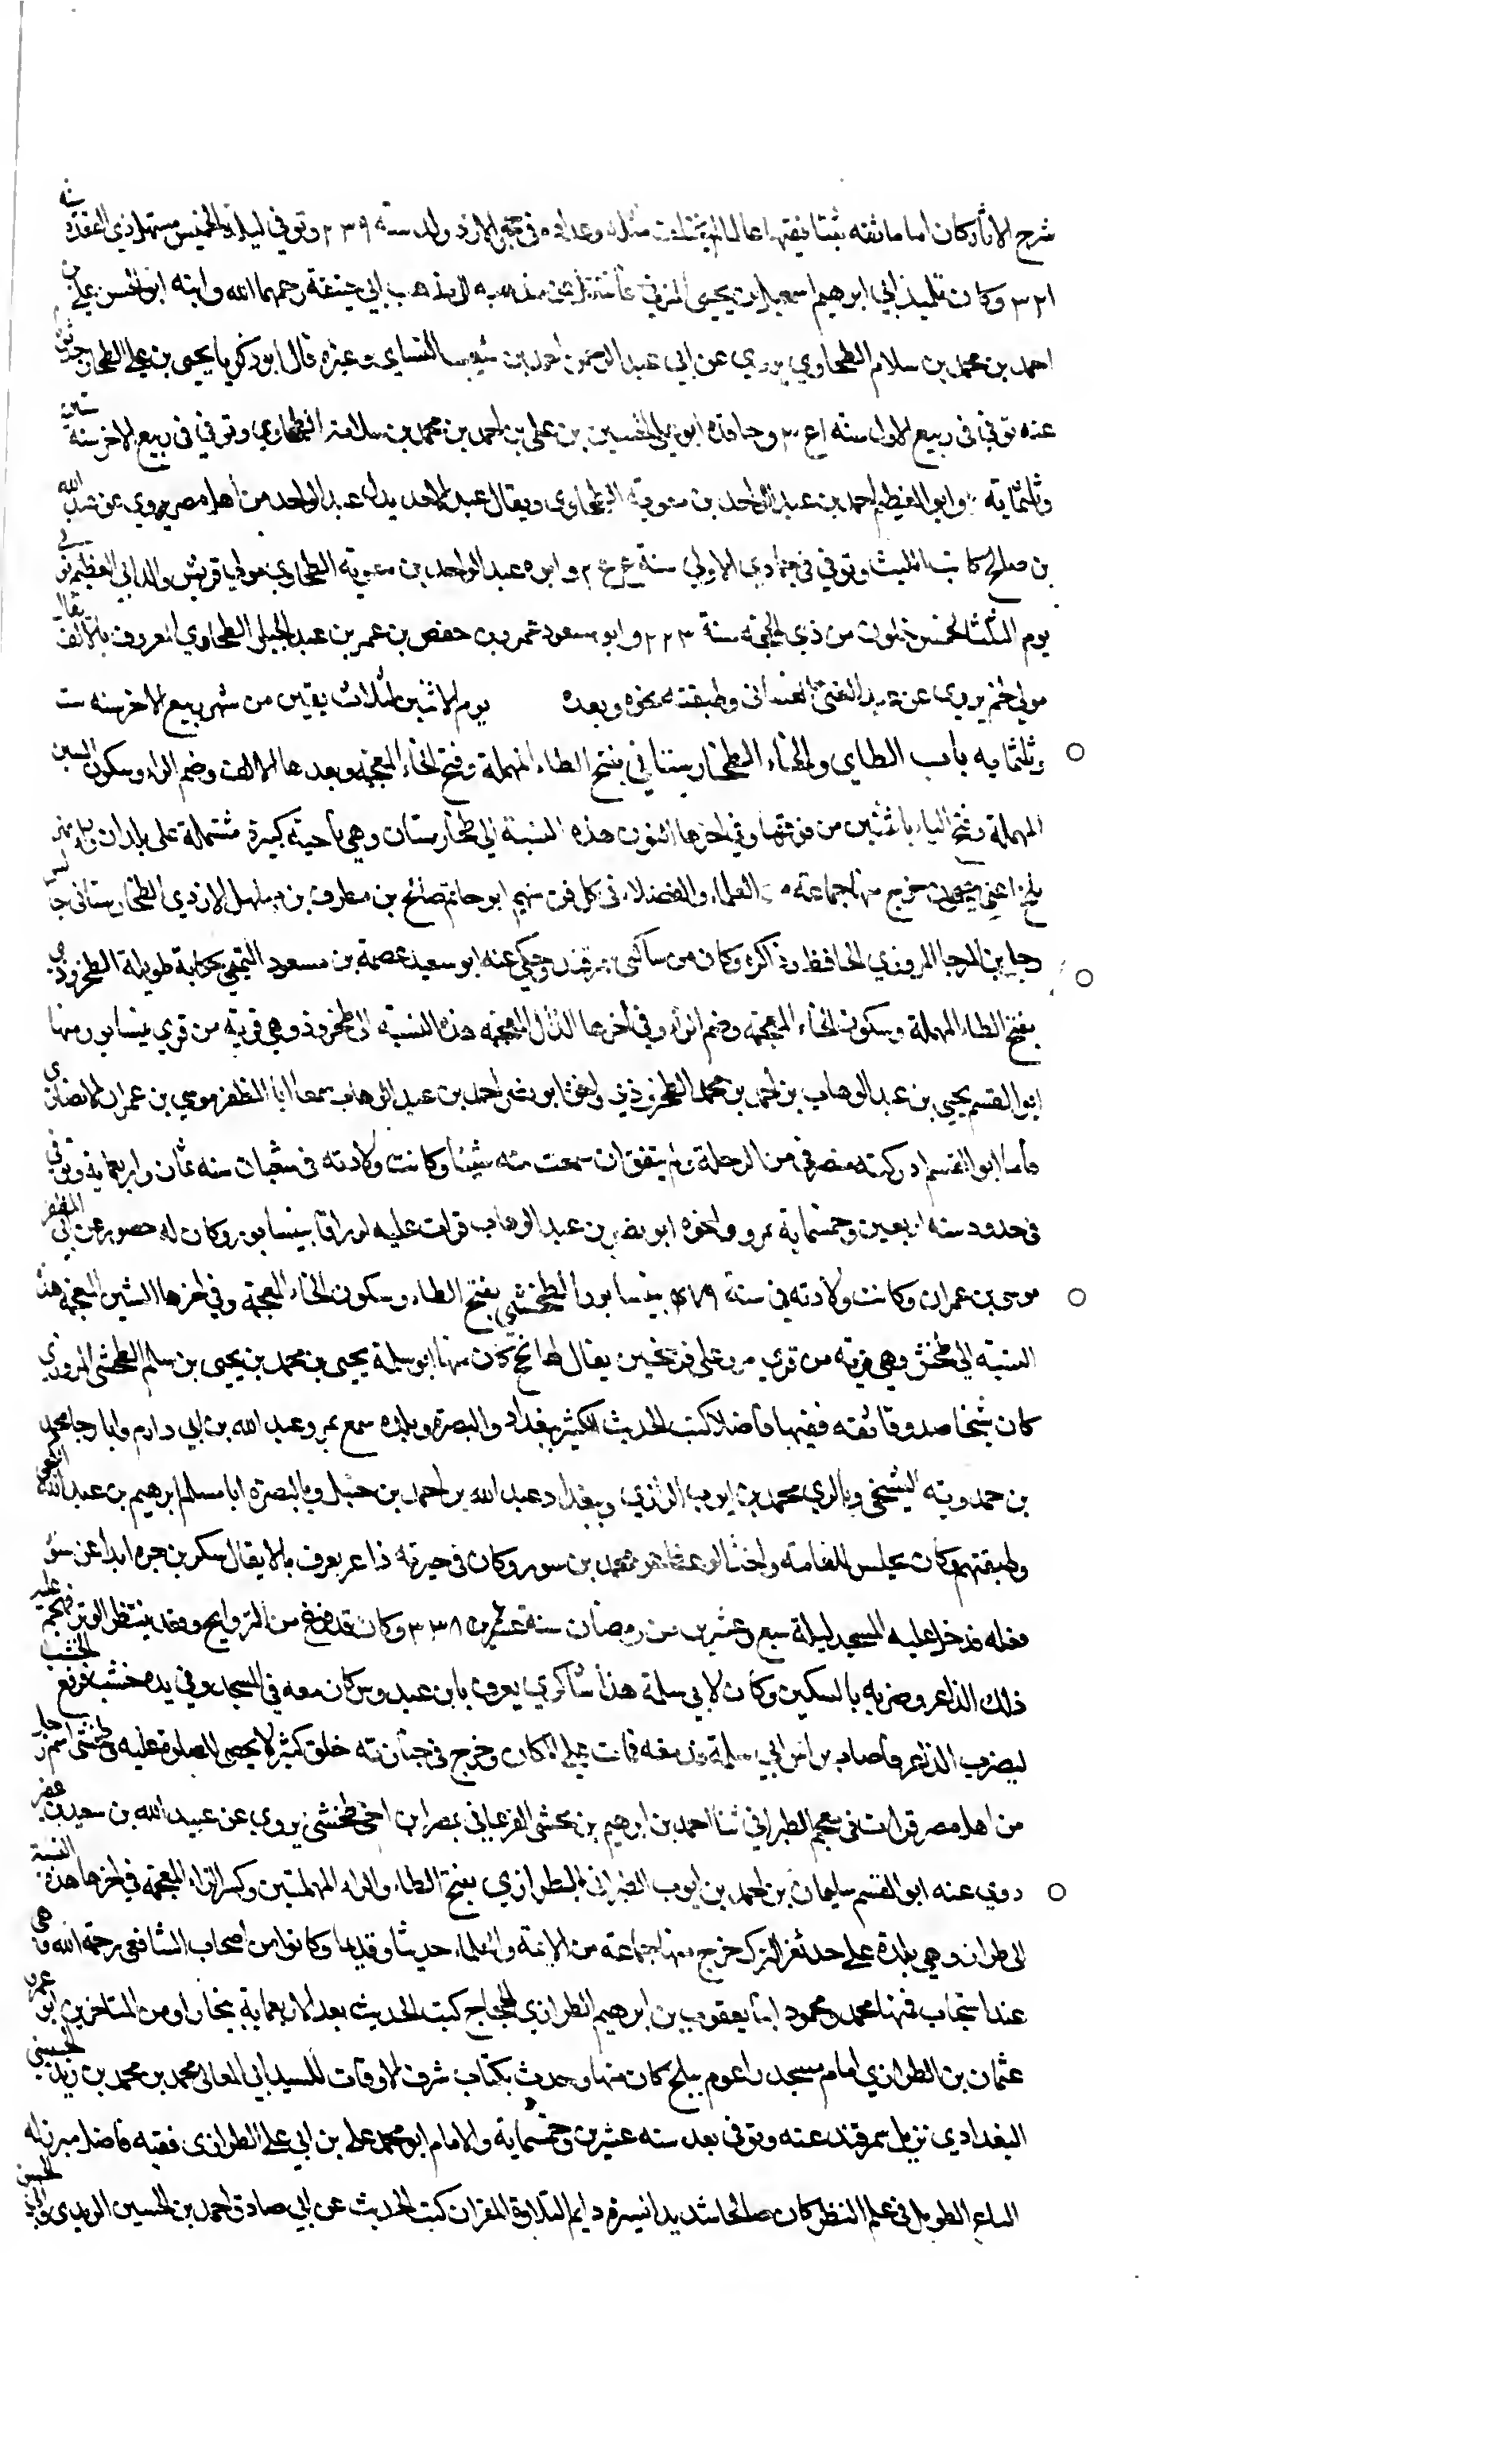 شرح الاثار كان اماما ثقه ثبتا فقيها عالما لم يخلف مثله وعداده في حجر الازد ولد سنه ٢٣٩ وتوفي ليلة الخميس مستهل ذي القعده سنه
٣٢١ وكان تلميذ ابي ابرهيم اسمعيل بن يحيى المزني فانتقل من مذهبه الى مذهب ابي حنيفة رحمهما الله وابنه ابو الحسن علي بن
احمد بن محمد بن سلام الطحاوي يروي عن ابي عبد الرحمن احمد بن شعيب النساي وغيره قال ابو زكريا يحيى بن علي الطحان حدثونا
عنه توفي في ربيع الاول سنه وحافده ابو علي الحسين بن علي بن احمد بن محمد بن سلامه الطحاوي وتوفي في ربيع الاخر سنة ستين
وثلثمايه وابو العظيم احمد بن عبد الواحد بن معوية الطحاوي ويقال عبد الاحد بدل عبد الواحد من اهل مصر يروي عن عبد الله
بن صالح كاتب الليث وتوفي في جمادي الاولى سنة وابوه عبد الواحد بن معويه الطحاوي مولى قريش والد ابي العظيم توفي
يوم الثلثا لخمس خلون من ذي الحجه سنة ٢٢٣ وابو مسعود عمرو بن حفص بن عمر بن عبد الجبار الطحاوي المعروف يقال
مولي لخم يروي عن عبد الغني الغساني وطبقته نحوه وبعده يوم الاثنين لثلاث بقين من شهر ربيع الاخر سنه ست
وثلثمايه باب الطاي والخاء الطخارستاني بفتح الطاء المهملة وفتح الخاء المعجمه وبعدها الالف وضم الراء وسكون السين
المهملة وفتح التاء باثنتين من فوقها وفي اخرها النون هذه النسبة الي طخارستان وهي ناحيه كبيرة مشتملة على بلدان وراء نهر
بلخ اعني جيحون خرج منها جماعته من العلماء والفضلاء في كل فن منهم ابو حاتم صالح بن مطرف بن مهلهل الازدي الطخارستاني جالس
رجا بن المرجا المروزي الحافظ وذاكره وكان من ساكني سمرقند وحكي عنه ابو سعيد عصمة بن مسعود التميمي بحكاية طويلة الطخروذي
بفتح الطاء المهملة وسكون الخاء المعجمه وضم الراء وفي اخرها الذال المعجمه هذه النسبه الى طخروذ وهي قريه من قري نيسابور منها
ابو القسم يحيى بن عبد الوهاب بن احمد بن محمد الطخروذي واخوه ابو نصر احمد بن عبد الوهاب سمعا ابا المظفر موسى بن عمران الانصاري
فاما ابو القسم ادركته منصرفي من الرحلة ولم يتفق ان سمعت منه شيئا وكانت ولادته في شعبان سنه ثمان واربعماية وتوفي
في حدود سنه اربعين وخمسماية بمرو واخوه ابو نصر بن عبد الوهاب قرات عليه اوراقا بنيسابور وكان له حضور عن ابي المظفر
موسى بن عمران وكانت ولادته في سنة ٤٧٩ بنيسابور الطخشي بفتح الطاء وسكون الخاء المعجمة وفي اخرها الشين المعجمه هذه
النسبه الي طخش وهي قريه من قري مرو على فرسخين يقال لها كان منها ابو سلمة يحيى بن محمد بن يحيى بن سالم الطخشي المروزي
كان شيخا صدوقا ثقه فقيها فاضلا كتب الحديث الكثير ببغداد والبصرة وبلده سمع بمرو عبد الله بن ابي دارم وابا رجا محمد
بن حمدويه السنجي وبالري محمد بن ايوب الرازي وببغداد عبد الله بن احمد بن حنبل وبالبصره ابا مسلم ابرهيم بن عبد الله الكجي
وطبقتهم وكان يجلس للعامه محمد بن سور وكان في جيرته ذاعر يعرف بلال يقال سكر بن جره ابدا عن سوء
فعله فدخل عليه المسجد ليلة سبع وعشرين من رمضان سنة ٣٣٨ وكان قد فرغ من التراويح وقعد ينتظر الوتر فهجم عليه
ذلك الذاعر وضربه بالسكين وكان لابي سلمة هذا شاكري يعرف بابن عبدوس كان معه في المسجد وفي يده خشب فرفع الخشب
ليضرب الذاعر فاصاب راس ابي سلمة فدمغه فمات علي المكان وخرج في جنازته خلق كثير لا يحصى للصلوة عليه وطخشي اسم رجل
من اهل مصر قرات في معجم الطبراني ثنا احمد بن ابرهيم بن طخشي الفرغاني بمصر ابن اخي طخشي يروي عن عبيد الله بن سعيد بن عفير
روى عنه ابو القسم سليمان بن احمد بن ايوب الطبراني الطرازي بفتح الطاء والراء المهملتين وكسر الزاء المعجمة في اخرها هذه النسبة
الى طراز وهي بلدة على حد ثغر الترك خرج منها جماعة من الايمة والعلماء حديثا وقديما وكانوا من اصحاب الشافعي رحمه الله وهي
عند اسبيجاب فمنها محمد ومحمود ابنا يعقوب بن ابرهيم الطرازي الحجاج كتبت الحديث بعد الاربعماية ببخارا ومن المتاخرين ابو عمرو
عثمان بن الطرازي امام مسجد راعوم ببلخ كان منها وحدث بكتاب شرف الاوقات للسيد ابي المعالي محمد بن محمد بن زيد الحسيني
البغدادي نزيل سمرقند عنه وتوفي بعد سنه عشرين وخمسماية والامام ابو محمد علي بن ابي علي الطرازي فقيه فاضل مبرز له
الباع الطويل في علم النظر كان صالحا شديد السيرة دايم التلاوة القران كتبت الحديث عن ابي صادق احمد بن الحسين الزبدي وابي الحسن